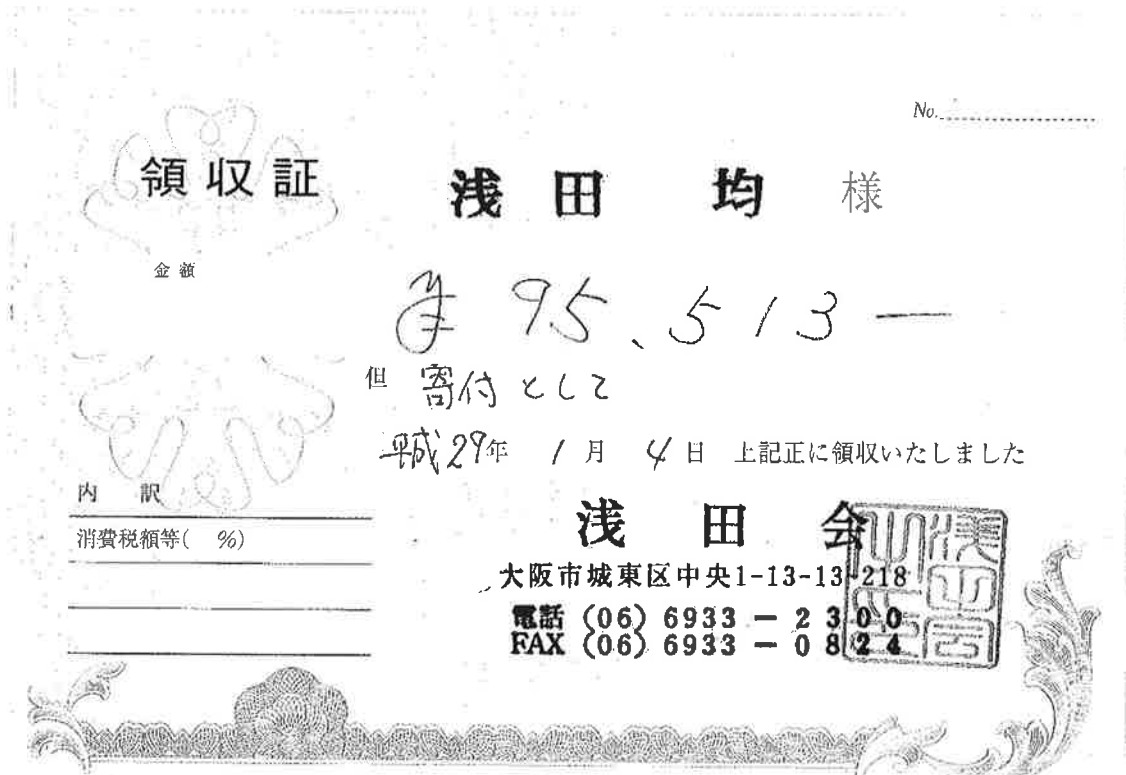 No.
領収証 浅田 均 様
金額
¥95,513―
但 寄付として
平成29年 1月 4日 上記正に領収いたしました
内 訳
消費税額等( %)
浅田会
大阪市城東区中央1-13-13-218
電話 (06) 6933-2300
FAX (06) 6933-0824